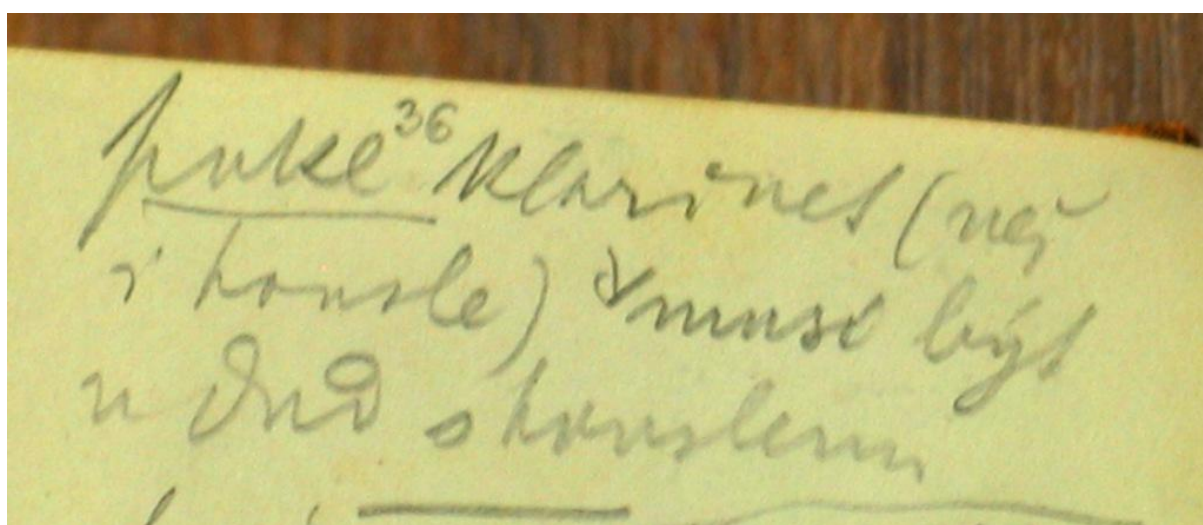 pukl 36 klarinet (než
i housle) musí být
u dud s houslemi